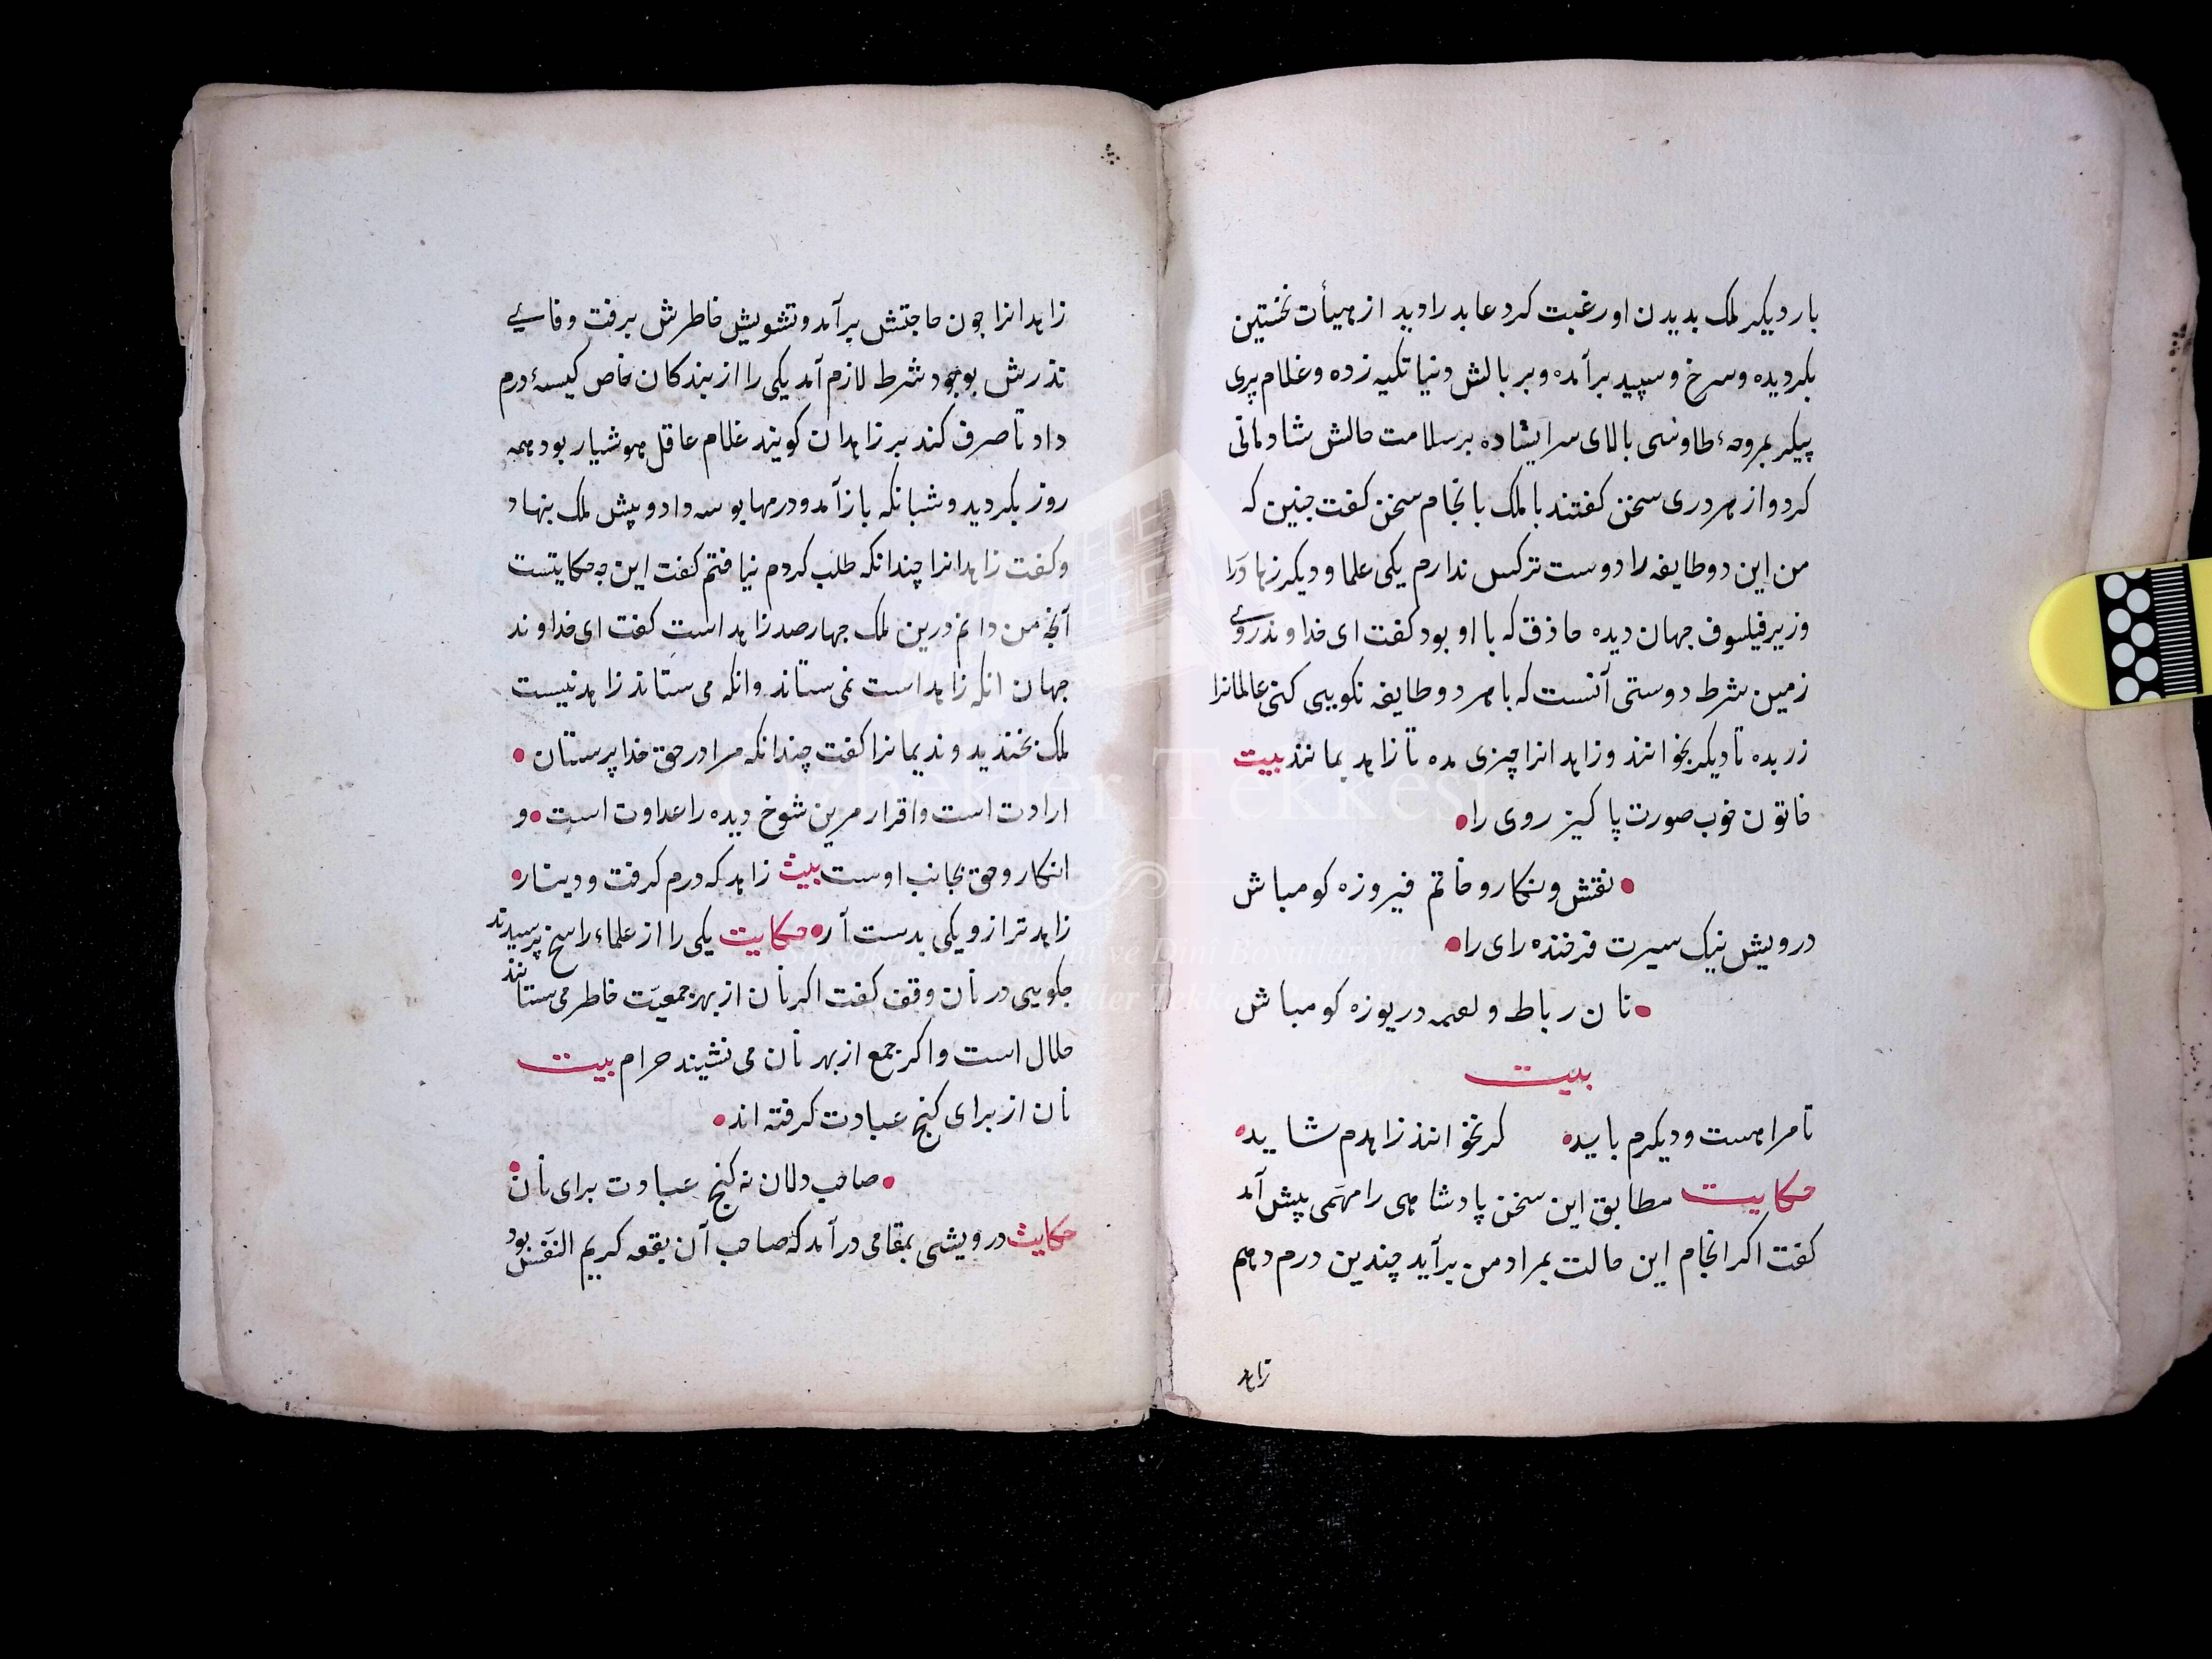 بار دیکر ملک بدیدن او رغبت کرد عابد را دید از هیأت نخستین
بکردیده وسرخ وسپید برآمده وبر بالش دنیا تکیه زده وغلام پری
پیکر بمروحهٔ طاوسی بالای سر ایشاده بر سلامت حالش شادمانی
کرد واز هر دری سخن کفتند با ملک بانجام سخن کفت چنین که
من این دو طایفه را دوست ترکس ندارم یکی علما ودیکر زهاد را
وزیر فیلسوف جهان دیده حاذق که با او بود کفت ای خداوند روی
زمین شرط دوستی آنست که با هر دو طایفه نکویی کنی عالمانرا
زر بده تا دیکر بخوانند وزاهدانرا چیزی مده تا زاهد بمانند بیت
خاتون خوب صورت پاکیز روی را
نقش ونکار وخاتم فیروزه کو مباش
درویش نیک سیرت فرخنده رای را
نان رباط ولقمه دریوزه کو مباش
بیت
تا مرا هست ودیکرم باید کر نخوانند زاهدم شاید
حکایت مطابق این سخن پادشاهی را مهمی پیش آمد
کفت اکر انجام این حالت بمراد من برآید چندین درم دهم
زاهد
زاهدانرا چون حاجتش برآمد وتشویش خاطرش برفت وفای
نذرش بوجود شرط لازم آمد یکی را از بندکان خاص کیسهٔ درم
داد تا صرف کند بر زاهدان کویند غلام عاقل هوشیار بود همه
روز بکردید وشبانکه باز آمد ودرمها بوسه داد وپیش ملک بنهاد
وکفت زاهدانرا چندانکه طلب کردم نیافتم کفت این چه حکایتست
آنچه من دانم درین ملک چهارصد زاهد است کفت ای خداوند
جهان انکه زاهد است نمی ستاند وانکه می ستاند زاهد نیست
ملک بخندید وندیمانرا کفت چندانکه مرا در حق خدا پرستان
ارادت است واقرار مرین شوخ دیده را عداوت است و
انکار وحق بجانب اوست بیت زاهد که درم کرفت ودینار
زاهدتر ازو یکی بدست آر حکایت یکی را از علماء راسخ پرسیدند
چکویی در نان وقف کفت اکر نان از بهر جمعیّت خاطر می ستانند
حلال است واکر جمع از بهر نان می نشیند حرام بیت
نان از برای کنج عبادت کرفته اند
صاحب دلان نه کنج عبادت برای نان
حکایت درویشی بمقامی درآمد که صاحب آن بقعه کریم النفس بود
Özbekler Tekkesi